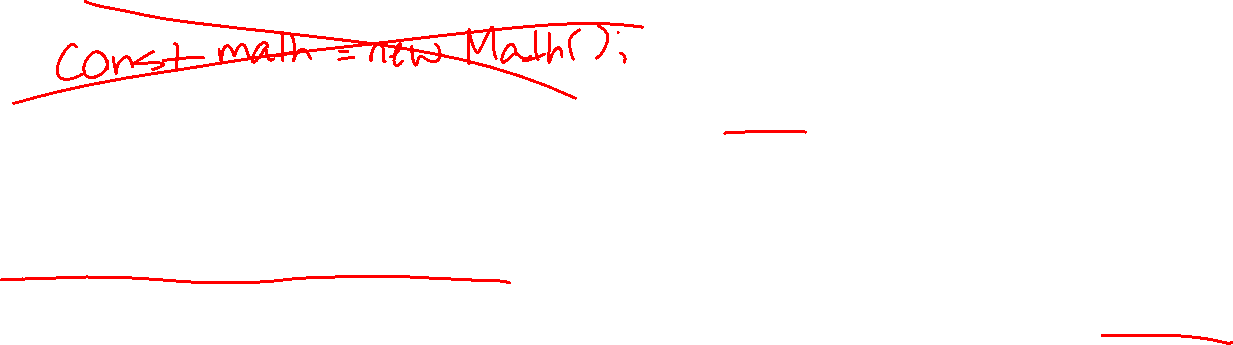 const math = new Math();